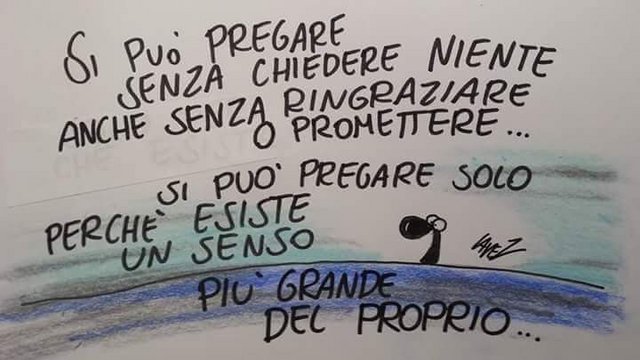 SI PUÒ PREGARE
SENZA CHIEDERE NIENTE
ANCHE SENZA RINGRAZIARE
O PROMETTERE...
SI PUO' PREGARE SOLO
PERCHÈ ESISTE
UN SENSO
PIU' GRANDE
DEL PROPRIO...